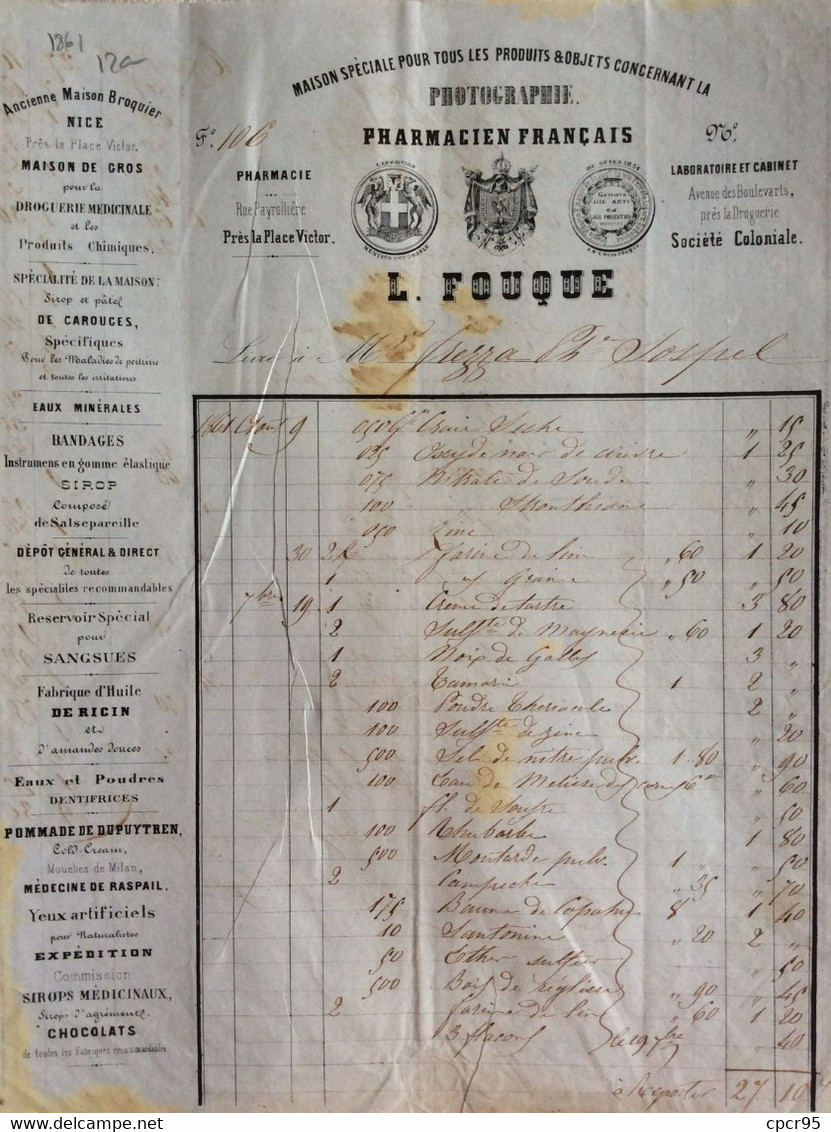 1861
12a
Ancienne Maison Broquier
NICE
Près la Place Victor.
MAISON DE GROS
pour la
DROGUERIE MEDICINALE
et les
Produits Chimiques.
SPÉCIALITÉ DE LA MAISON:
Sirop et pâtes
DE CAROUGES,
Spécifiques
Pour les Maladies de poitrine
et toutes les irritations
EAUX MINÉRALES
BANDAGES
Instrumens en gomme élastique
SIROP
Composé
de Salsepareille
DÉPÔT GÉNÉRAL & DIRECT
de toutes
les spéciales recommandables
Reservoir Spécial
pour
SANGSUES
Fabrique d'Huile
DE RICIN
et
d'amandes douces
Eaux et Poudres
DENTIFRICES
POMMADE DE DUPUYTREN,
Cold-Cream,
Mouches de Milan,
MÉDECINE DE RASPAIL.
Yeux artificiels
pour Naturalistes
EXPÉDITION
Commission
SIROPS MÉDICINAUX,
Sirops d'agréments.
CHOCOLATS
de toutes les Fabriques recommandables
MAISON SPÉCIALE POUR TOUS LES PRODUITS & OBJETS CONCERNANT LA
PHOTOGRAPHIE.
F° 106
PHARMACIEN FRANÇAIS
N°
PHARMACIE
Rue Payrollière
Près la Place Victor.
EXPOSITION
MENTION HONORABLE
LABORATOIRE ET CABINET
Avenue des Boulevarts,
près la Droguerie
Société Coloniale.
L. FOUQUE
Livré à Mr Trezza Phen Sospel
1861 Août 9 050 Gr Craie Seche " 15
025 Oxyde noir de cuivre 1 25
075 Nitrate de Soude " 30
100 " Strontiane " 45
050 Zinc " 10
30 2 K Farine de lin " 60 1 20
1 " Graine " 50 " 50
7bre 19 1 Crême de tartre 3 80
2 Sulfte de Magnesie " 60 1 20
1 Noix de Galles 3 "
2 Tamarin 1 2 "
100 Poudre Theriacale 2 "
100 Sulfte de zinc " 20
500 Sel de nitre pulv. 1.80 " 90
100 Eau de Melisse des carmes 6 " 60
1 fl. de Soufre " 50
100 Rhubarbe 1 80
500 Moutarde pulv. 1 " " 50
2 Campeche " 35 " 70
175 Baume de Copahu 8 1 40
10 Santonine " 20 2 "
50 Ether sulfur " 50
500 Bois de reglisse " 90 " 45
2 farine de lin " 60 1 20
3 flacons le 19 7bre " 40
à Reporter 27 10
cpcr95